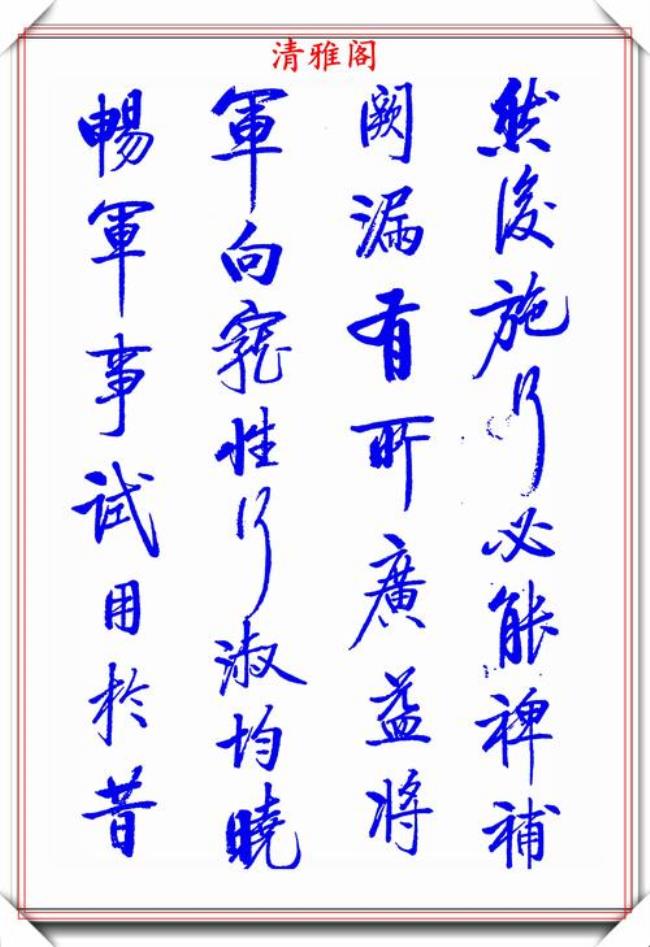 清雅阁
然後施行必能裨補
闕漏有所廣益將
軍向寵性行淑均曉
暢軍事試用於昔